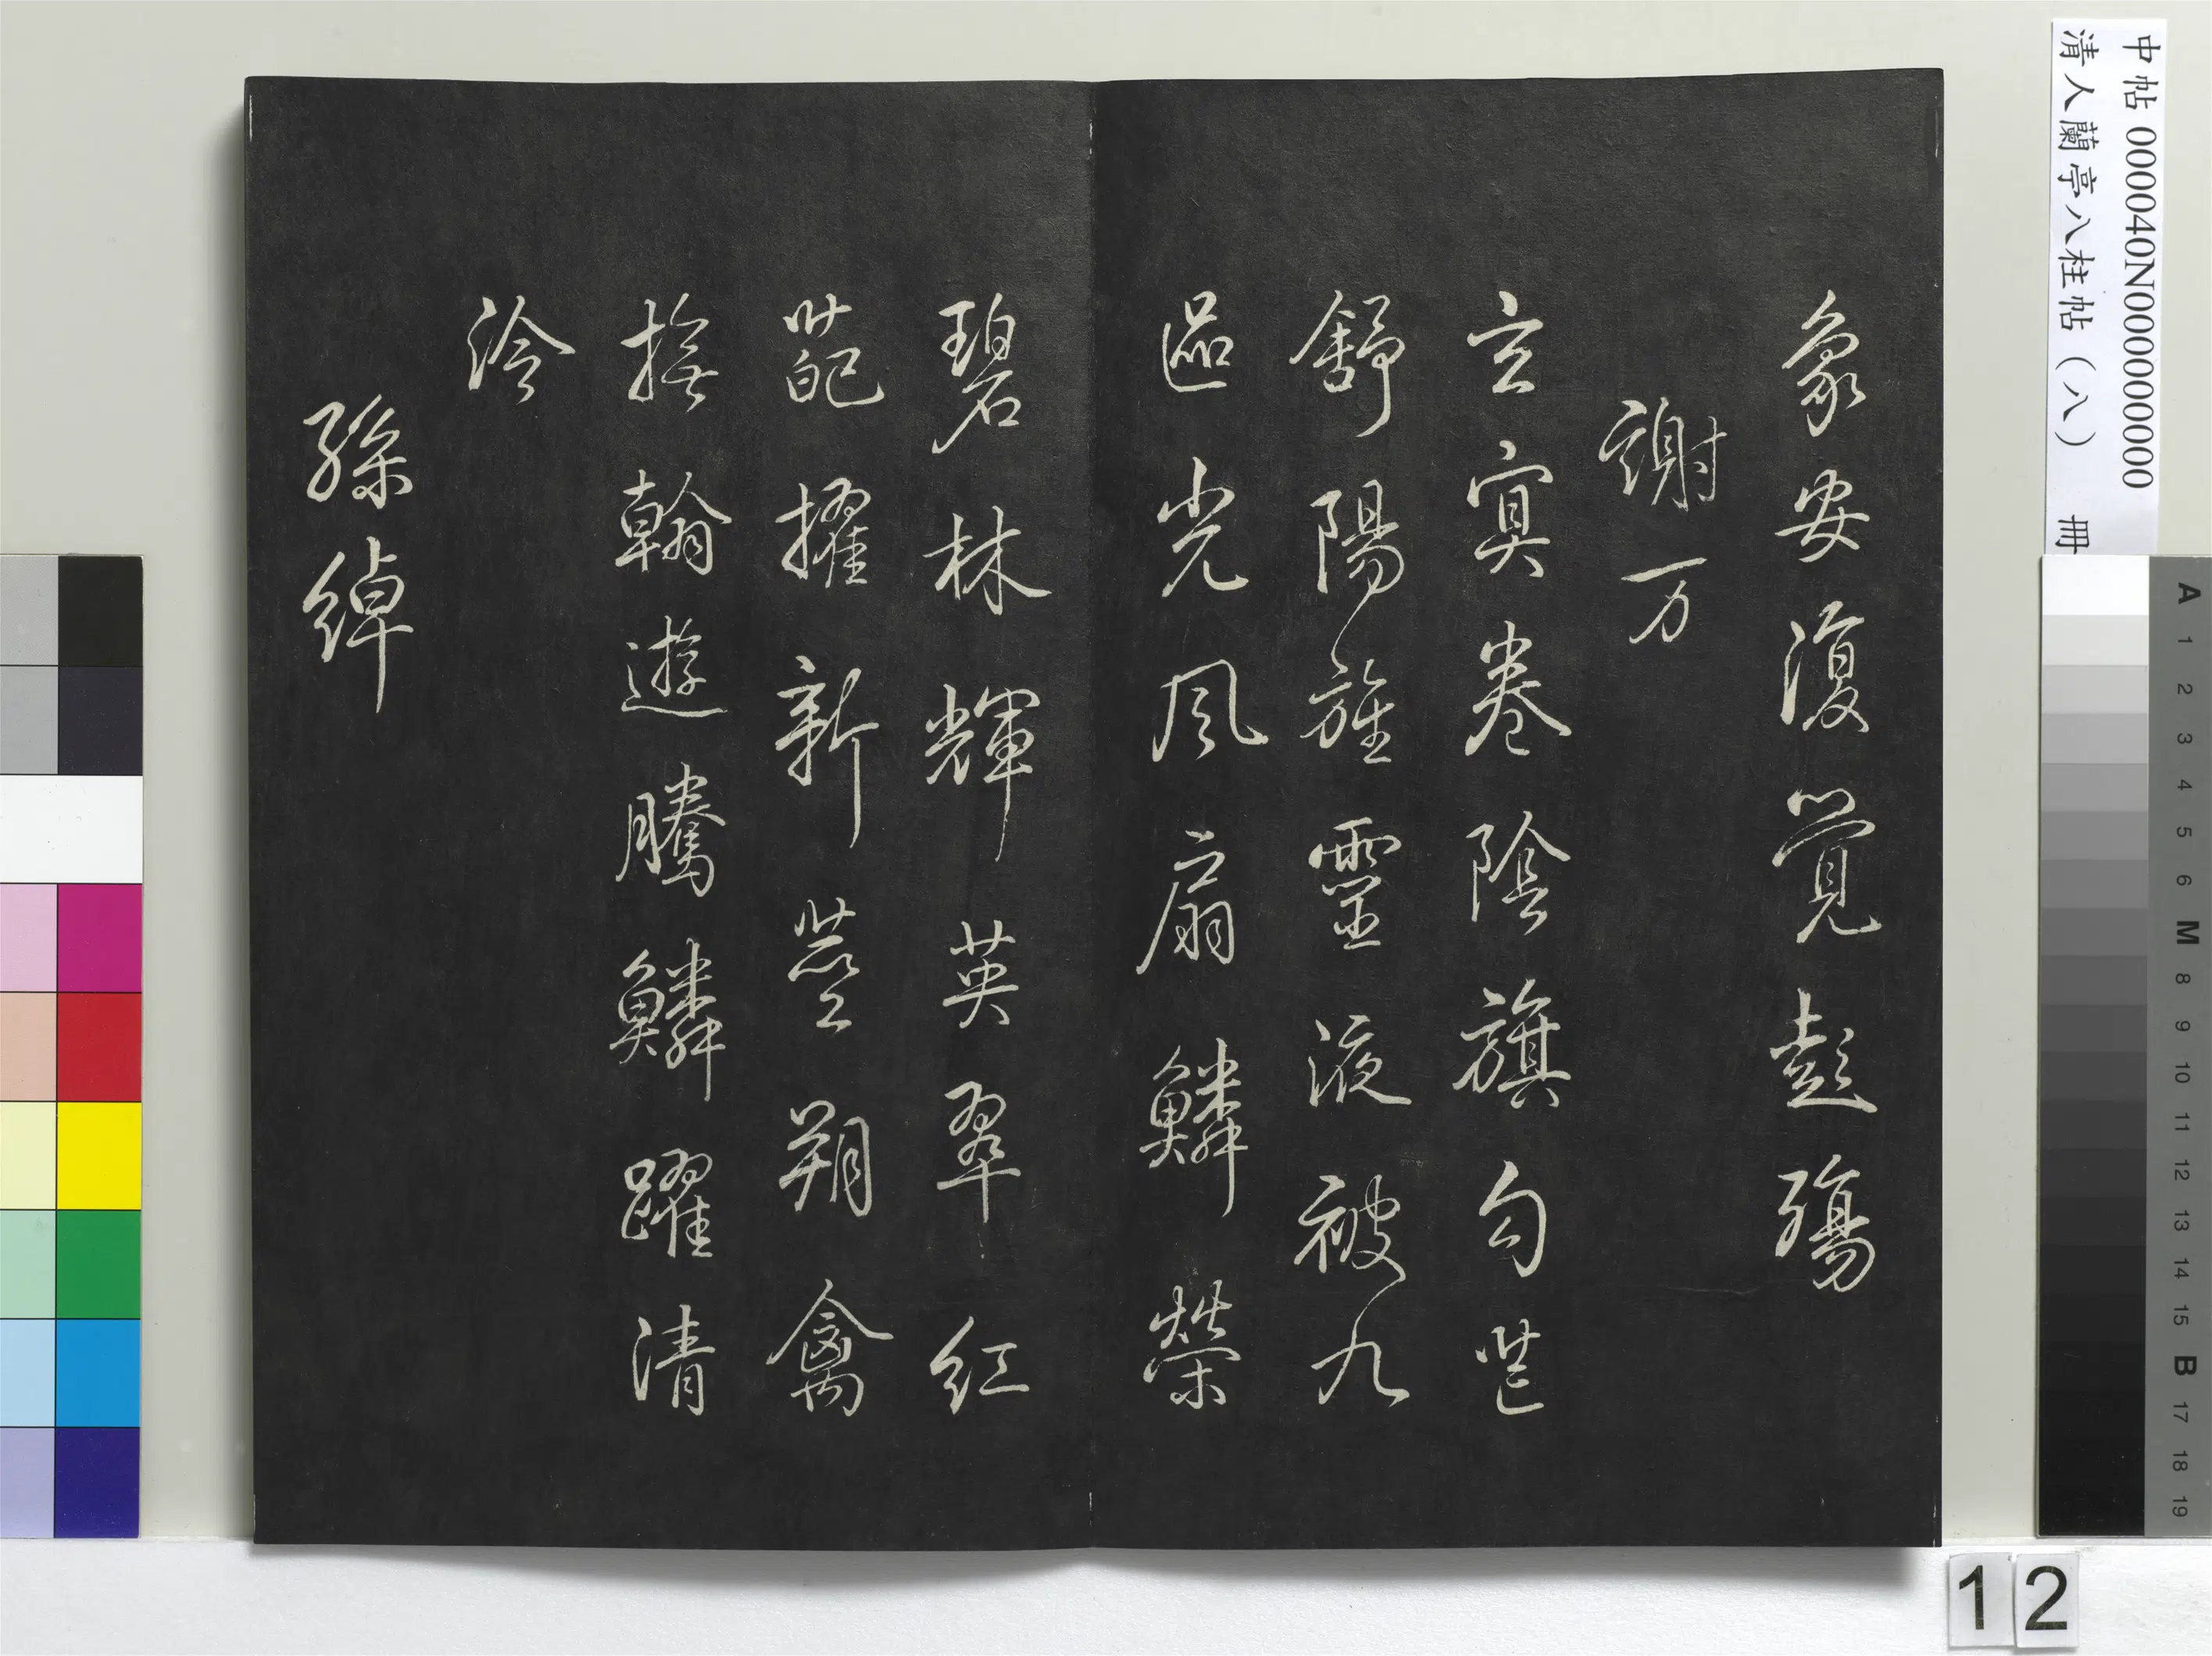 中帖 000040N000000000
清人蘭亭八柱帖(八) 冊
象安復覺彭殤
謝万
玄冥卷陰旗勾芒
舒陽旌靈液被九
區光風扇鱗榮
碧林輝英翠紅
葩擢新莖翔禽
撫翰遊騰鱗躍清
泠
孫綽
A 1 2 3 4 5 6 M 8 9 10 11 12 13 14 15 B 17 18 19
12